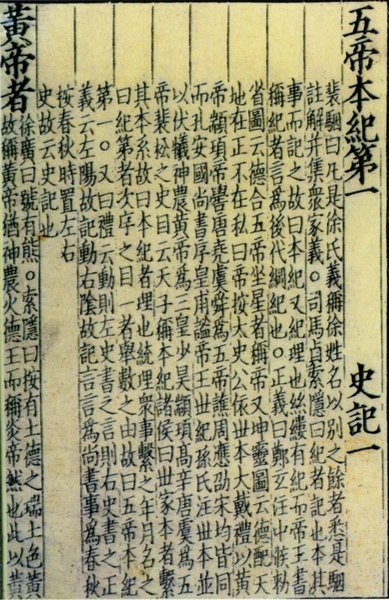 五帝本紀第一　史記一
裴駰曰凡是徐氏義稱徐姓名以別之餘者悉是駰
註解并集衆家義○司馬貞索隱曰紀者記也本其
事而記之故曰本紀又紀理也絲縷有紀而帝王書
稱紀者言爲後代綱紀也○正義曰鄭玄注中候勑
省圖云德合五帝坐星者稱帝又坤靈圖云德配天
地在正不在私曰帝按太史公依世本大戴禮以黃
帝顓頊帝嚳唐堯虞舜爲五帝譙周應劭宋均皆同
而孔安國尚書序皇甫謐帝王世紀孫氏注世本並
以伏犧神農黃帝爲三皇少昊顓頊高辛唐虞爲五
帝裴松之史目云天子稱本紀諸侯曰世家本者繫
其本系故曰本紀者理也統理衆事繫之年月名之
曰紀第者次序之目一者舉數之由故曰五帝本紀
第一○又曰禮云動則左史書之言則右史書之正
義云左陽故記動右陰故記言言爲尚書事爲春秋
按春秋時置左右
史故云史記也
黃帝者
徐廣曰號有熊○索隱曰按有土德之瑞土色黃
故稱黃帝猶神農火德王而稱炎帝然也此以黃